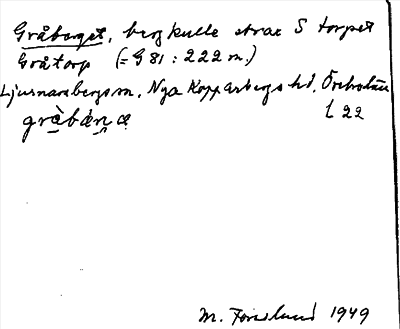 Gråberget, bergkulle strax S torpet
Gråtorp (= G 81 : 222 m.)
Ljusnarsbergs sn. Nya Kopparbergs hd. Örebro län
L 22
gràbǽrgæ
M. Forslund 1949